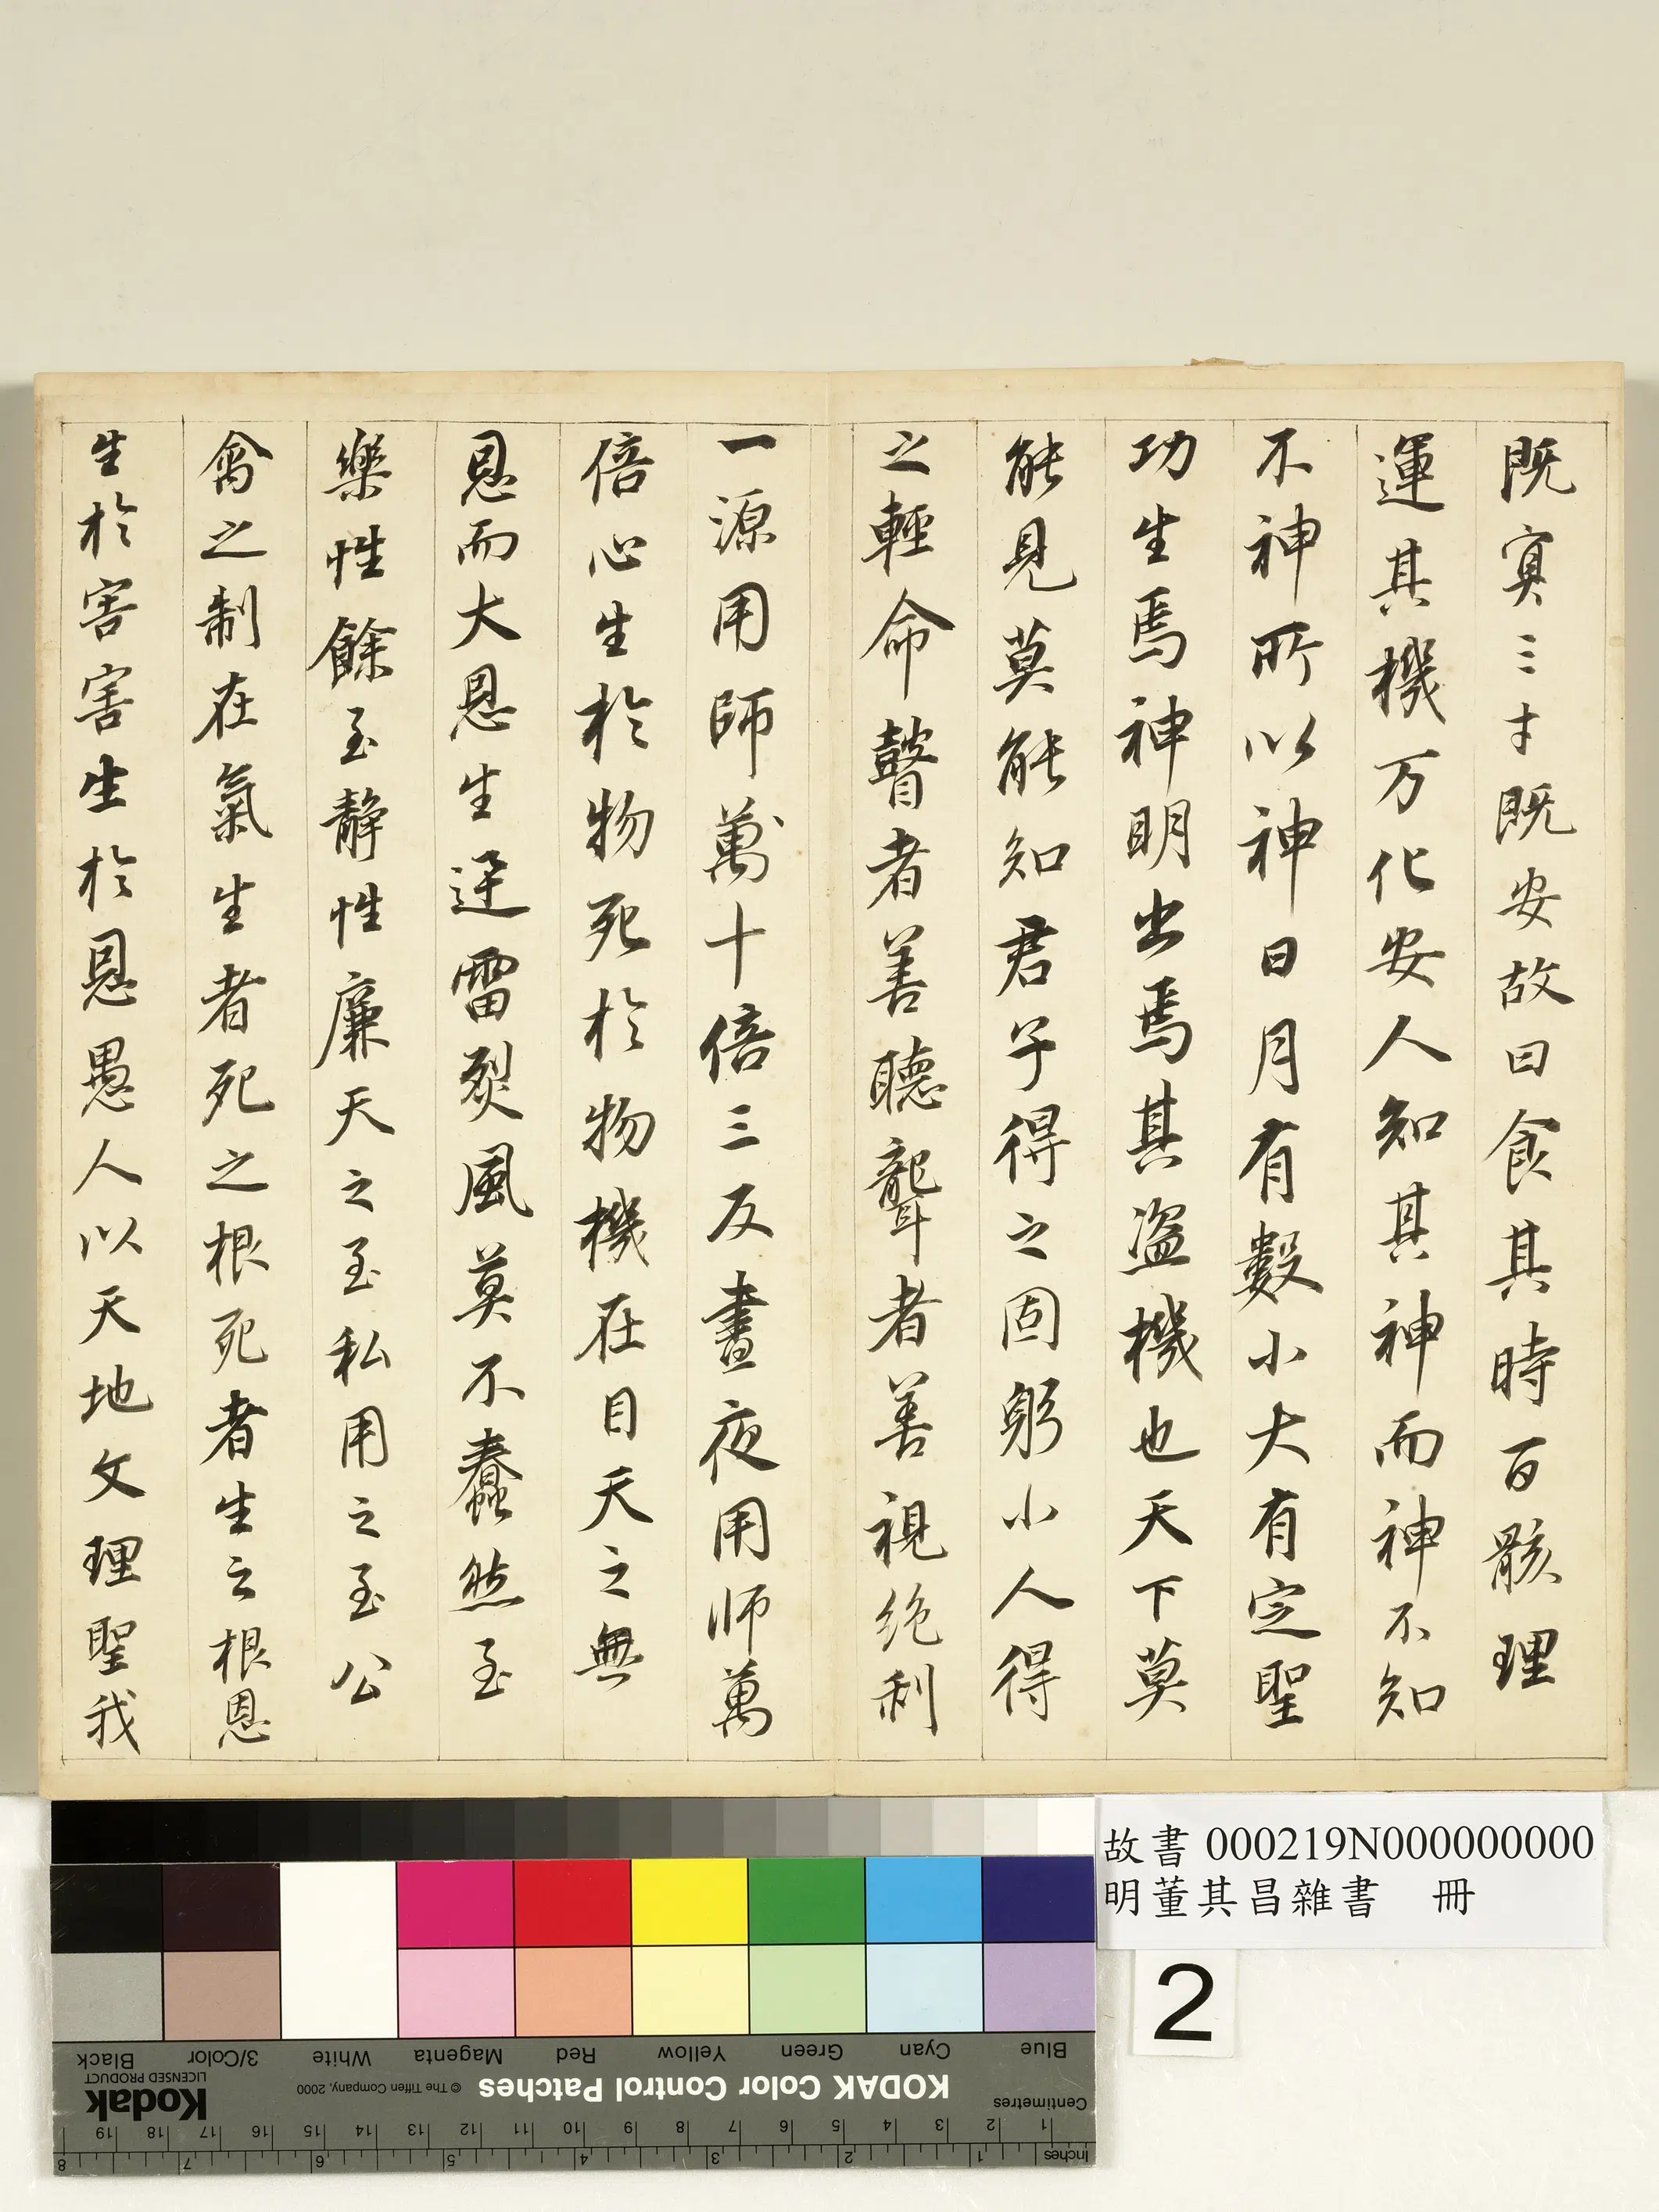 既宜三才既安故曰食其時百骸理
運其機万化安人知其神而神不知
不神所以神日月有數小大有定聖
功生焉神明出焉其盜機也天下莫
能見莫能知君子得之固躬小人得
之輕命瞽者善聽聾者善視絶利
一源用師萬十倍三反晝夜用師萬
倍心生於物死於物機在目天之無
恩而大恩生迅雷烈風莫不蠢然至
樂性餘至静性廉天之至私用之至公
禽之制在氣生者死之根死者生之根恩
生於害害生於恩愚人以天地文理聖我
故書 000219N000000000
明董其昌雜書 冊
2
Blue Cyan Green Yellow Red Magenta White 3/Color Black
KODAK Color Control Patches © The Tiffen Company, 2000 Kodak
LICENSED PRODUCT
Centimetres 1 2 3 4 5 6 7 8 9 10 11 12 13 14 15 16 17 18 19
Inches 1 2 3 4 5 6 7 8